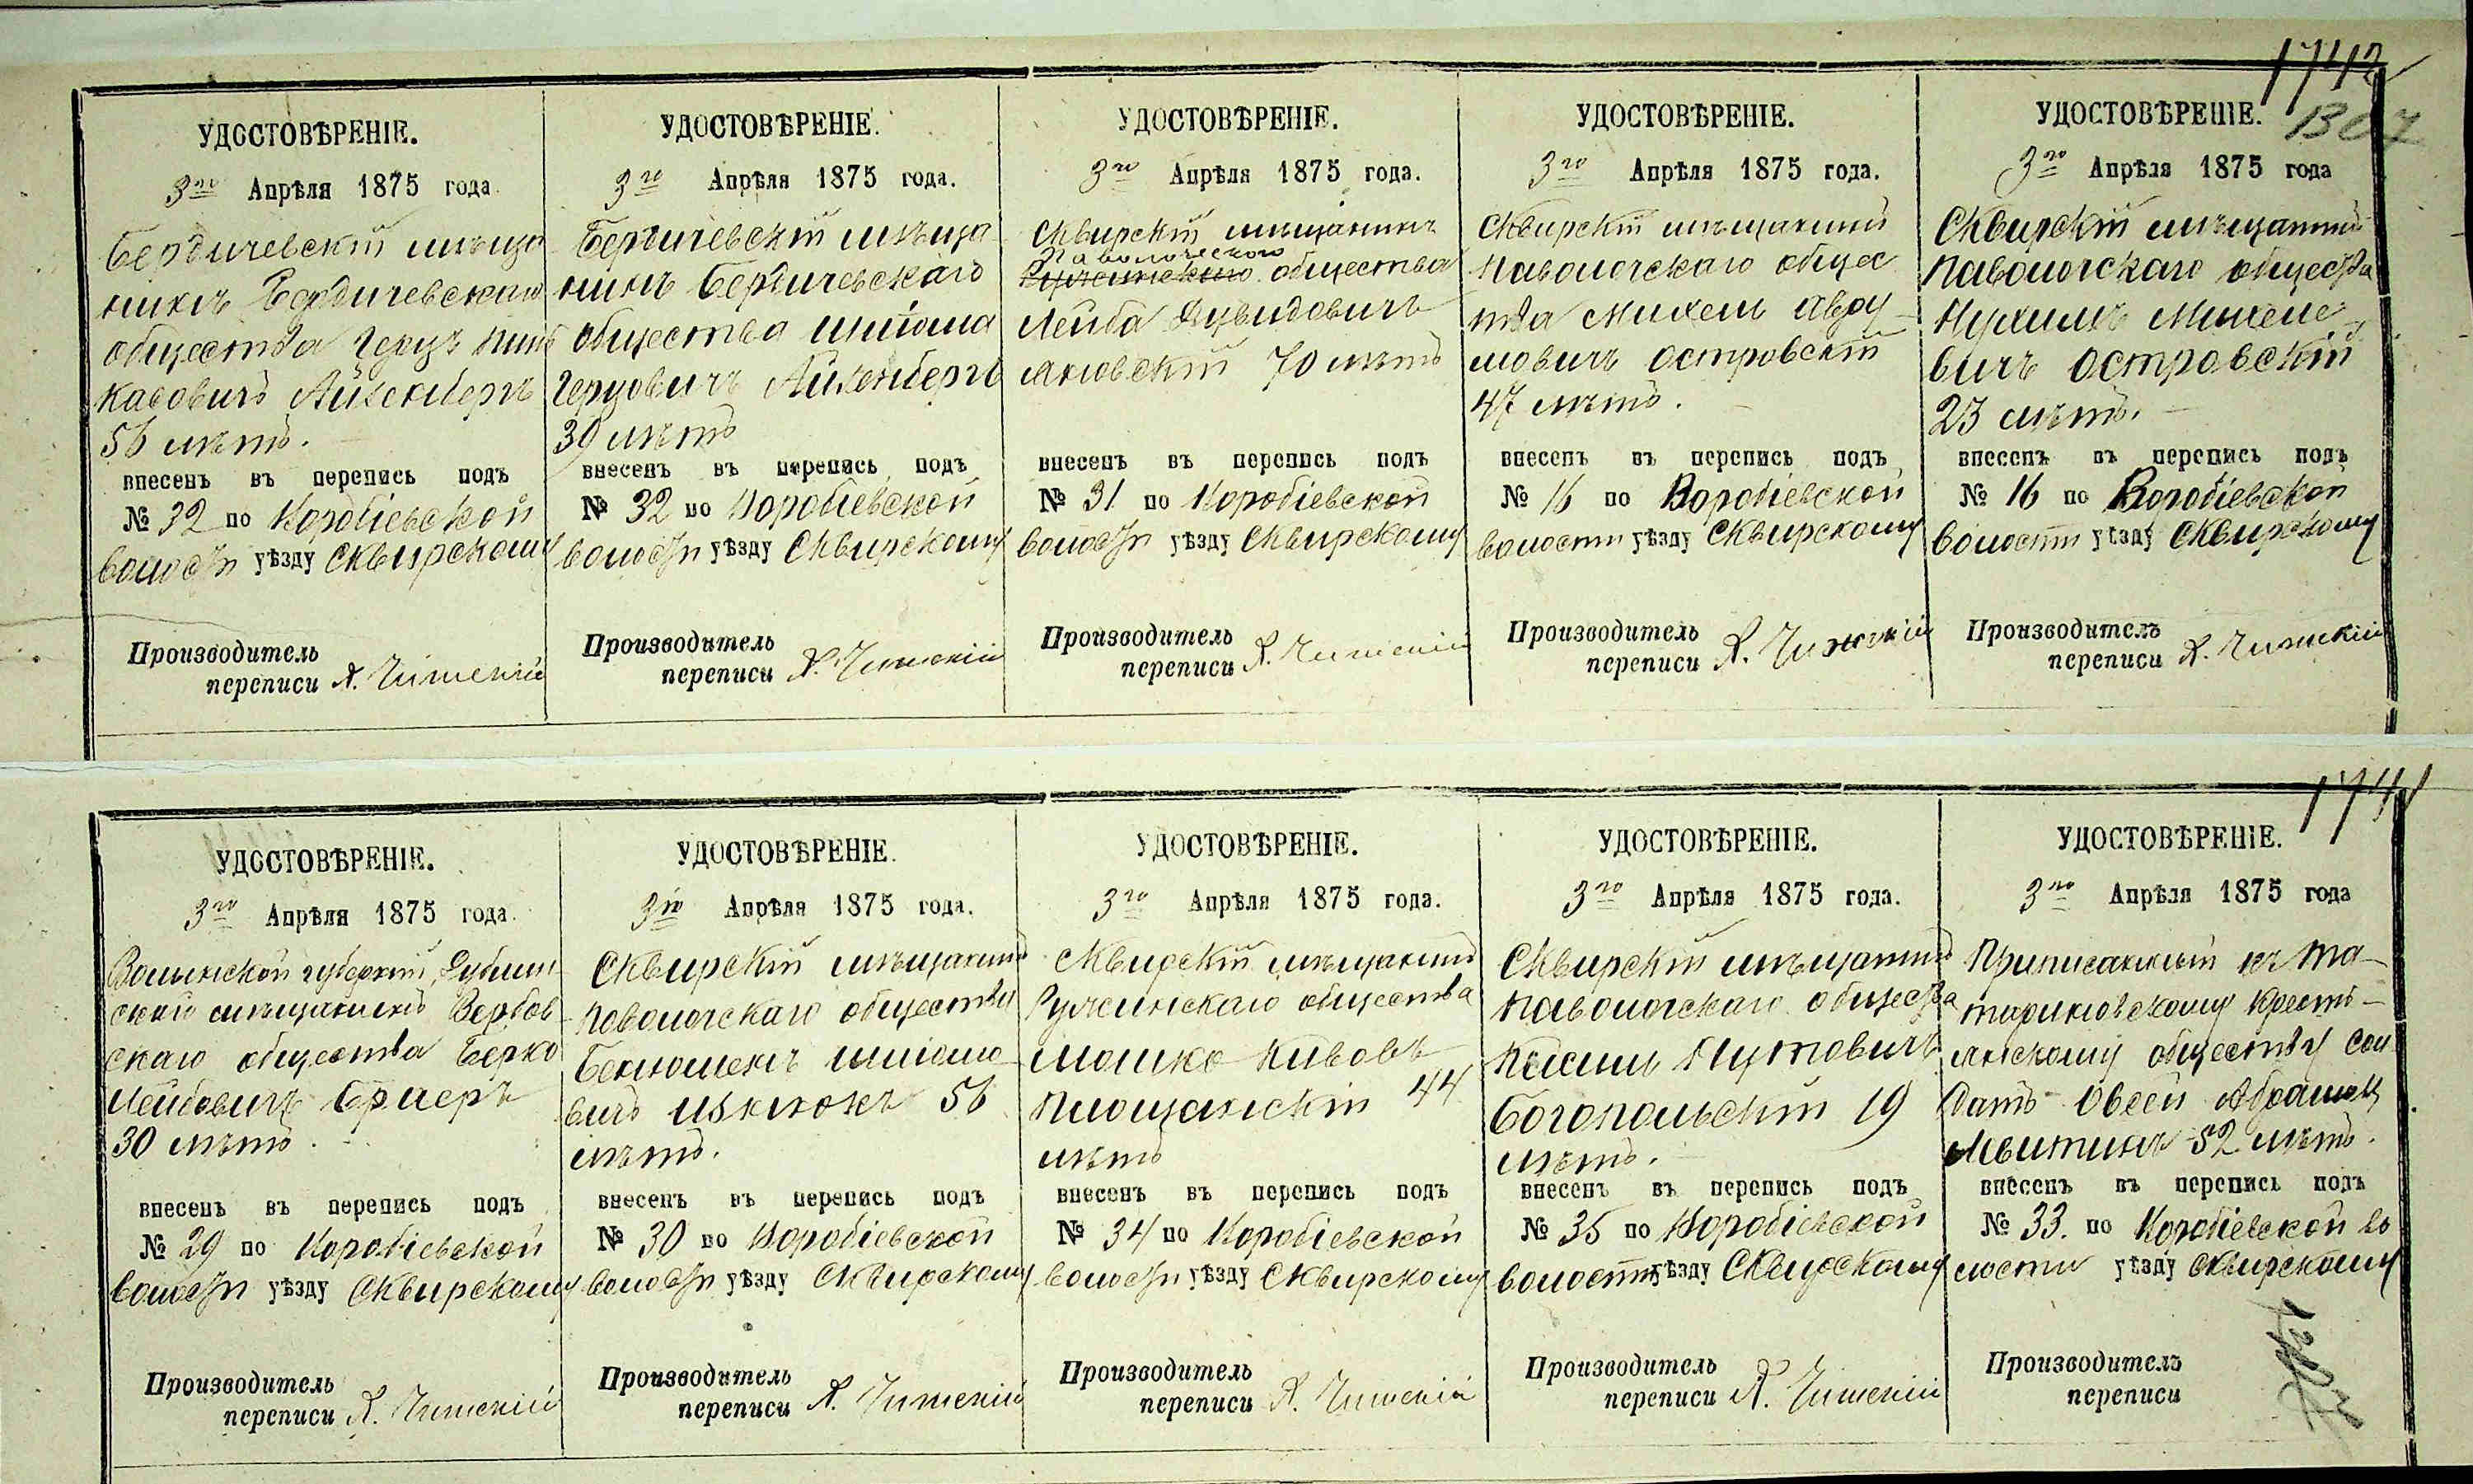 1742
1307
УДОСТОВѢРЕНІЕ.
3го Апрѣля 1875 года.
Бердичевскій мѣща
нинъ Бердичевскаго
общества Герцъ Пин
касовичъ Айзенбергъ
56 лѣтъ.
внесенъ въ перепись подъ
№ 32 по Воробіевской
волости уѣзду Сквирскому
Производитель
переписи
УДОСТОВѢРЕНІЕ.
3го Апрѣля 1875 года.
Бердичевскій мѣща
нинъ Бердичевскаго
общества Шліома
Герцовичъ Айзенбергъ
30 лѣтъ
внесенъ въ перепись подъ
№ 32 по Воробіевской
волости уѣзду Сквирскому
Производитель
переписи
УДОСТОВѢРЕНІЕ.
3го Апрѣля 1875 года.
Сквирскій мѣщанинъ
Паволочского
общества
Лейба Дувидовичъ
70 лѣтъ
внесенъ въ перепись подъ
№ 31 по Воробіевской
волости уѣзду Сквирскому
Производитель
переписи
УДОСТОВѢРЕНІЕ.
3го Апрѣля 1875 года.
Сквирскій мѣщанинъ
Паволочскаго общес
тва Михель Авру
мовичъ Островскій
47 лѣтъ.
внесенъ въ перепись подъ
№ 16 по Воробіевской
волости уѣзду Сквирскому
Производитель
переписи
УДОСТОВѢРЕНІЕ.
3го Апрѣля 1875 года
Сквирскій мѣщанинъ
Паволочскаго общества
Нухимъ Михеле
вичъ Островскій
23 лѣтъ.
внесенъ въ перепись подъ
№ 16 по Воробіевской
волости уѣзду Сквирскому
Производитель
переписи
1741
УДОСТОВѢРЕНІЕ.
3го Апрѣля 1875 года.
Волынской губерніи Дублин
скій мѣщанинъ Вербов
скаго общества Берко
Лейбовичъ
30 лѣтъ.
внесенъ въ перепись подъ
№ 29 по Воробіевской
волости уѣзду Сквирскому
Производитель
переписи
УДОСТОВѢРЕНІЕ.
3го Апрѣля 1875 года.
Сквирскій мѣщанинъ
Паволочскаго общества
Шліомо
вичъ 56
лѣтъ.
внесенъ въ перепись подъ
№ 30 по Воробіевской
волости уѣзду Сквирскому
Производитель
переписи
УДОСТОВѢРЕНІЕ.
3го Апрѣля 1875 года.
Сквирскій мѣщанинъ
Ружинскаго общества
Мошко Кивовъ
Площанскій 44
лѣтъ
внесенъ въ перепись подъ
№ 34 по Воробіевской
волости уѣзду Сквирскому
Производитель
переписи
УДОСТОВѢРЕНІЕ.
3го Апрѣля 1875 года.
Сквирскій мѣщанинъ
Паволочскаго общества
Богопольскій 19
лѣтъ.
внесенъ въ перепись подъ
№ 35 по Воробіевской
волости уѣзду Сквирскому
Производитель
переписи
УДОСТОВѢРЕНІЕ.
3го Апрѣля 1875 года
Приписанный къ Та-
тариновскому крестъ-
янскому обществу сол
датъ Овсей Абрамъ
52 лѣтъ.
внесенъ въ перепись подъ
№ 33. по Воробіевской во
лости уѣзду Сквирскому
Производитель
переписи